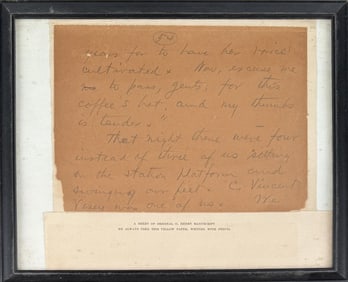 54
years for to have her voice
cultivated. Now, excuse me
to pass, gents; for this
coffee's hot, and my thumb
is tender."
That night there were four
instead of three of us sitting
on the station platform and
swinging our feet. C. Vincent
Vesey was one of us. We
A SHEET OF ORIGINAL O. HENRY MANUSCRIPT
HE ALWAYS USED THIS YELLOW PAPER, WRITING WITH PENCIL